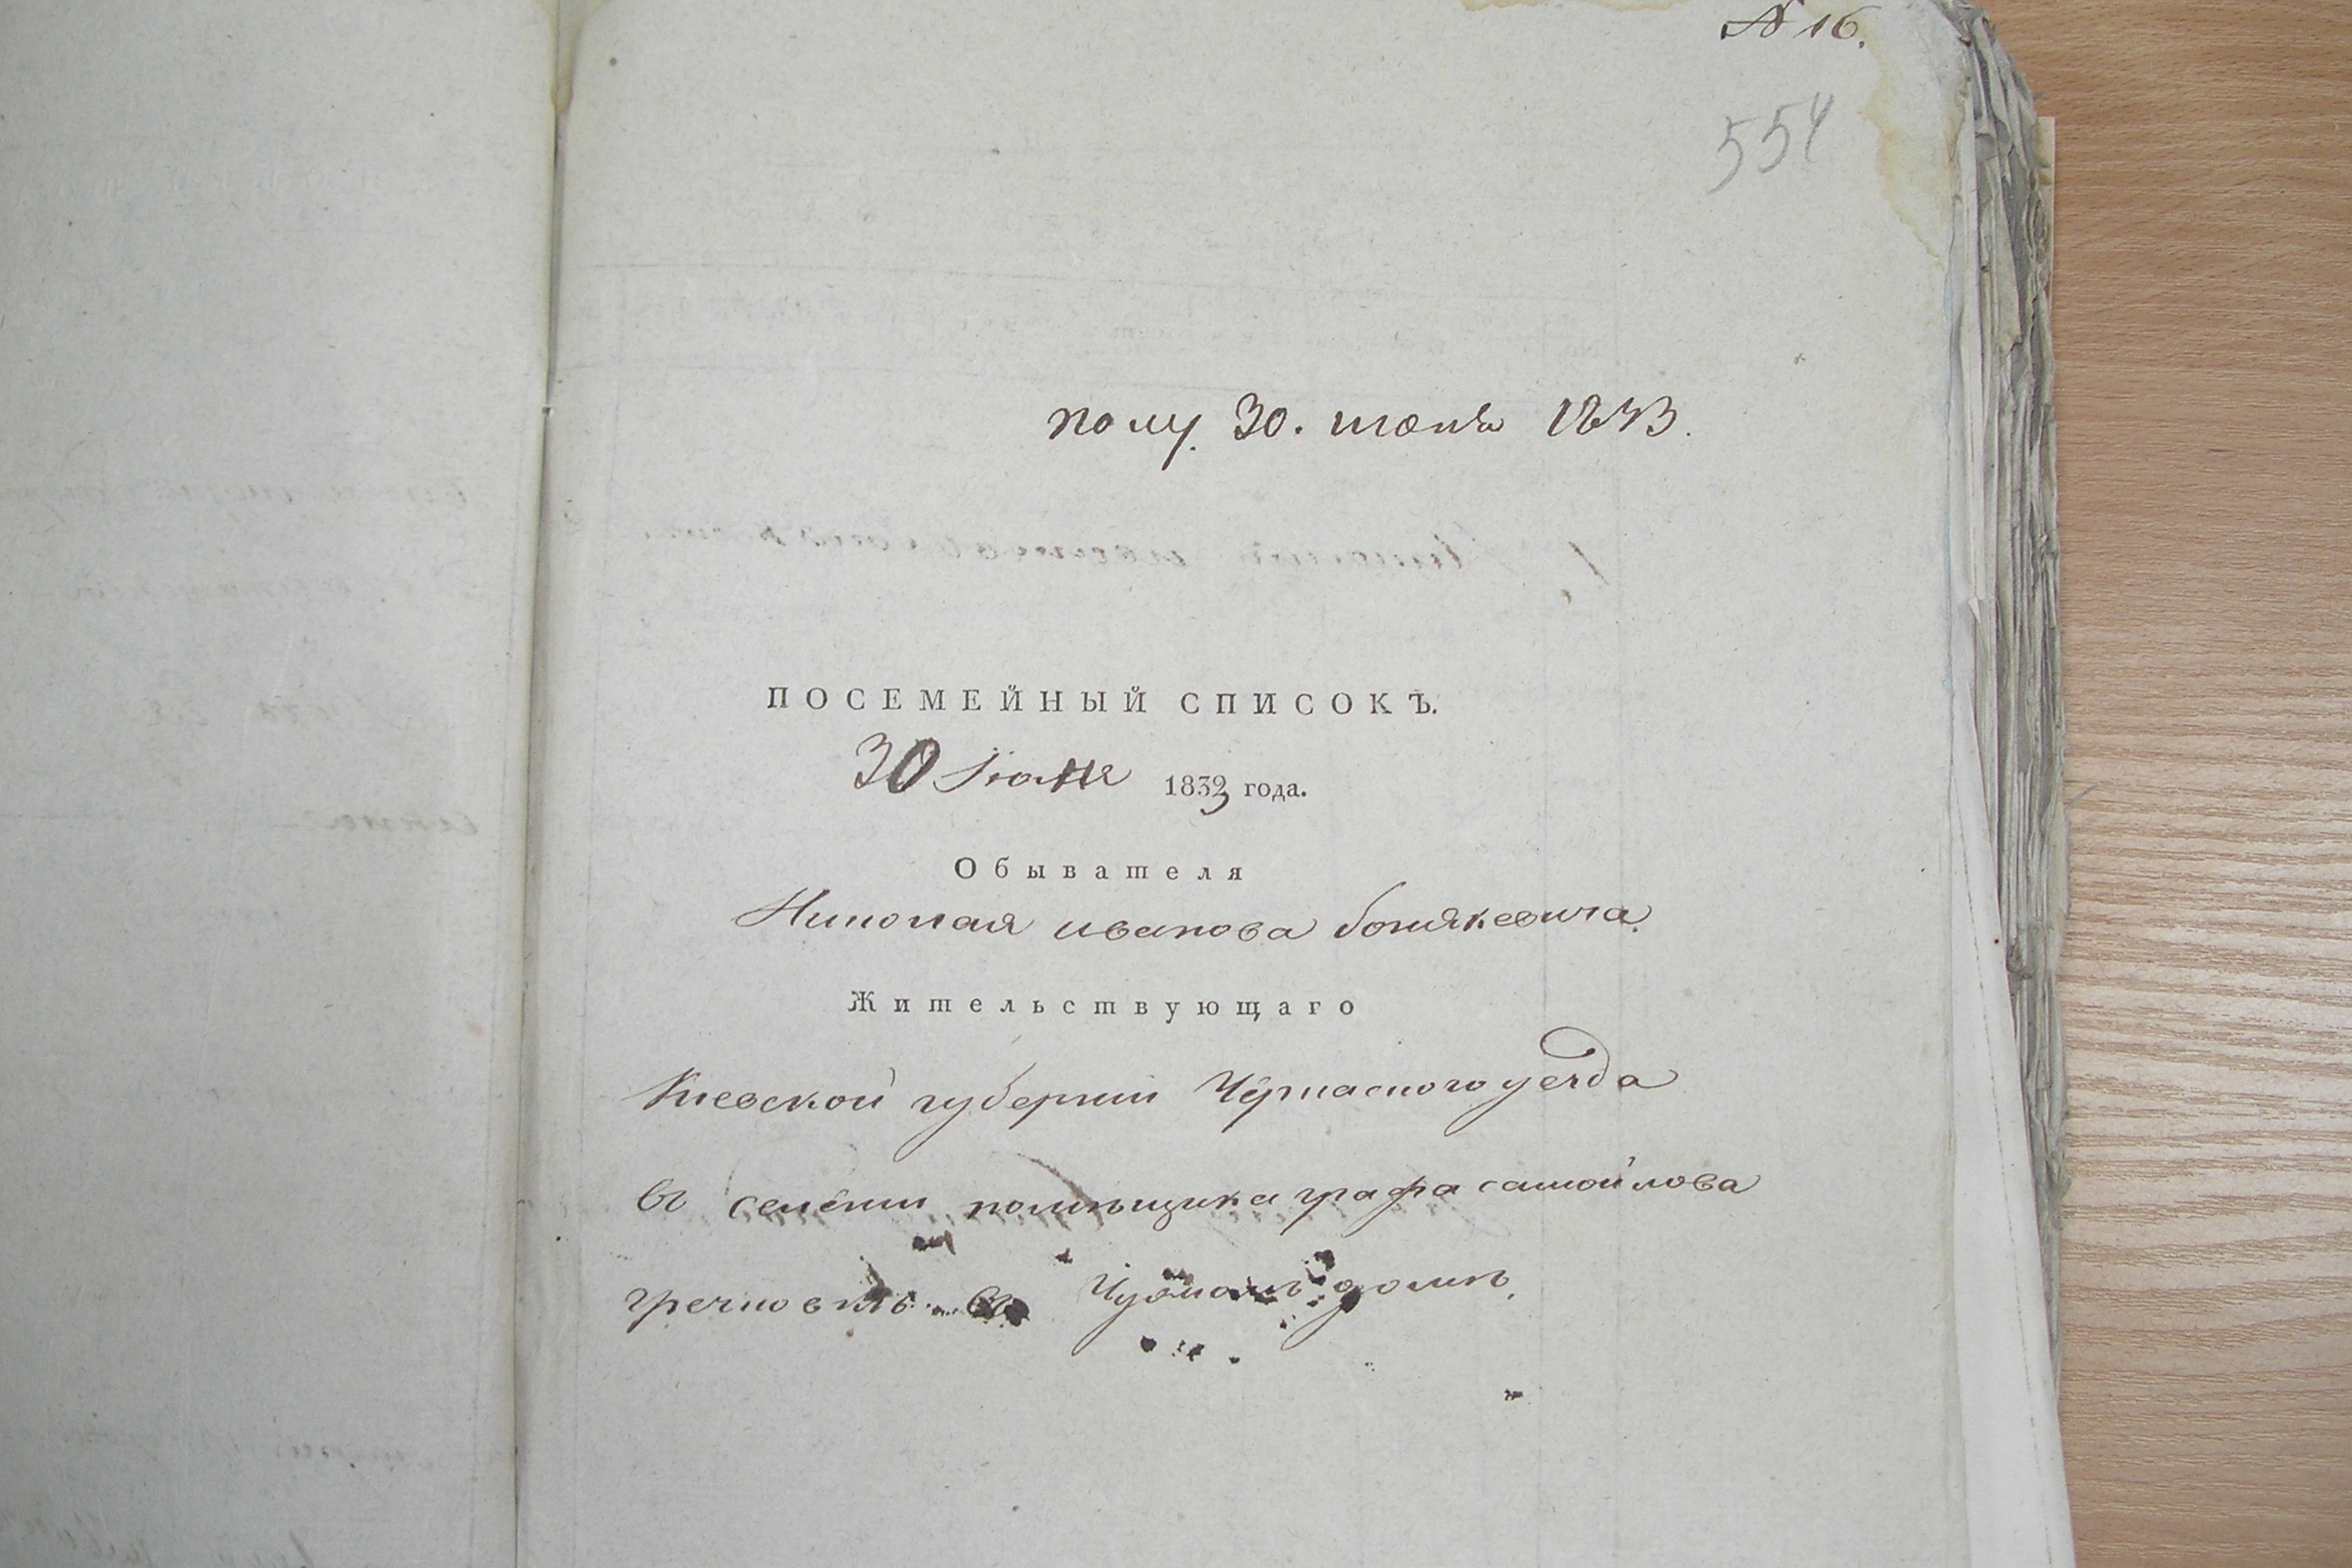 N 16.
554
полу. 30. июня 1833.
ПОСЕМЕЙНЫЙ СПИСОКЪ.
30 Июня 1833 года.
Обывателя
Николая иванова божякевича.
Жительствующаго
Киевской губернии Черкаского уезда
въ селении помѣщика графа самойлова
гречковкѣ въ Чужомъ домѣ.